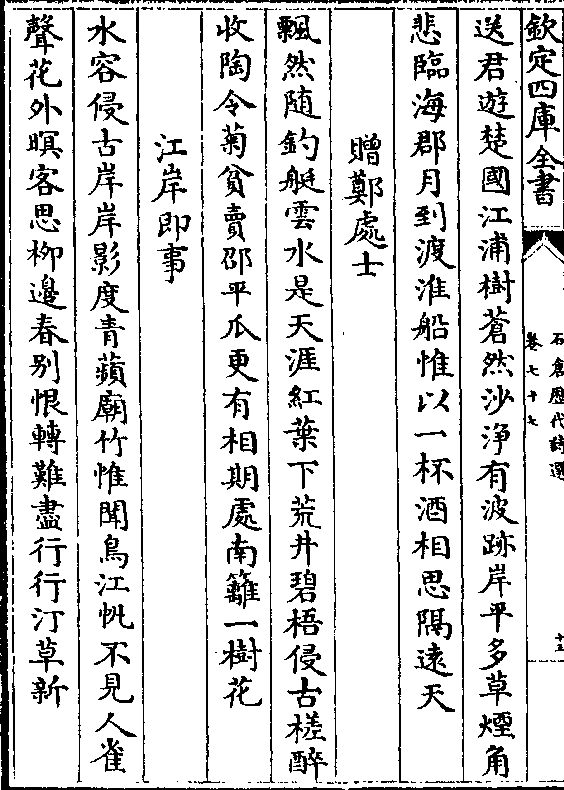 欽定四庫全書
石倉歷代詩選
卷七十七
十五
送君遊楚國江浦樹蒼然沙浄有波跡岸平多草煙角
悲臨海郡月到渡淮船惟以一杯酒相思隔遠天
贈鄭處士
飄然随釣艇雲水是天涯紅葉下荒井碧梧侵古槎醉
收陶令菊貧賣邵平瓜更有相期處南籬一樹花
江岸即事
水容侵古岸岸影度青蘋廟竹惟聞鳥江帆不見人雀
聲花外暝客思栁邉春别恨轉難盡行行汀草新